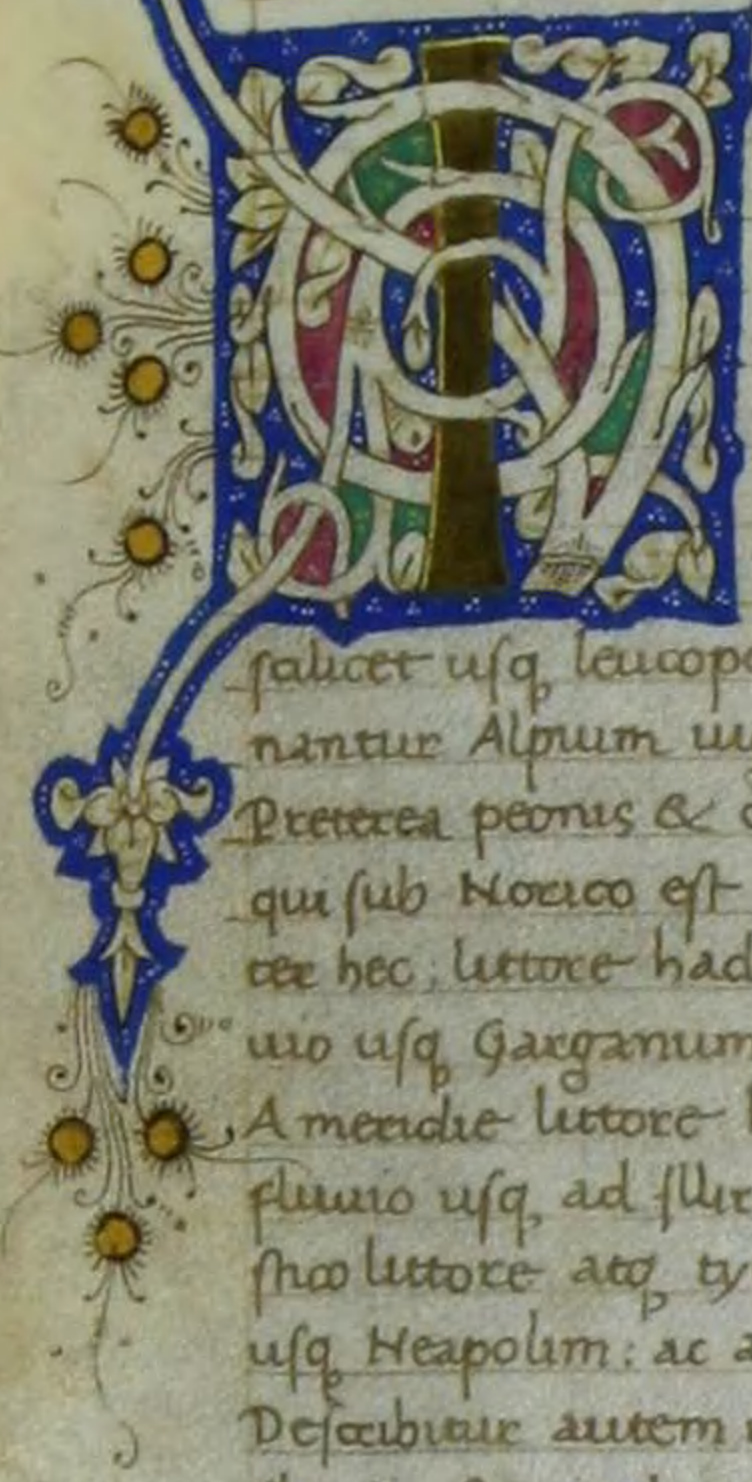 I
ſalicet uſq leucop
nantur Alpium
Preterea peonis &
qui ſub Norico eſt
ter hec; littore had
uio uſq Garganum
A meridie littore
fluuio uſq ad
littore atq ty
uſq Neapolim: ac a
Deſcribitur autem